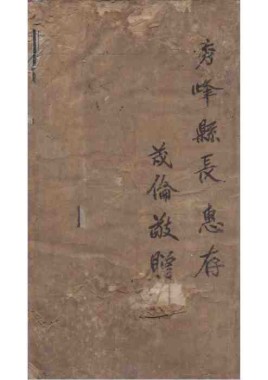 秀峰縣長惠存
茂倫敬贈